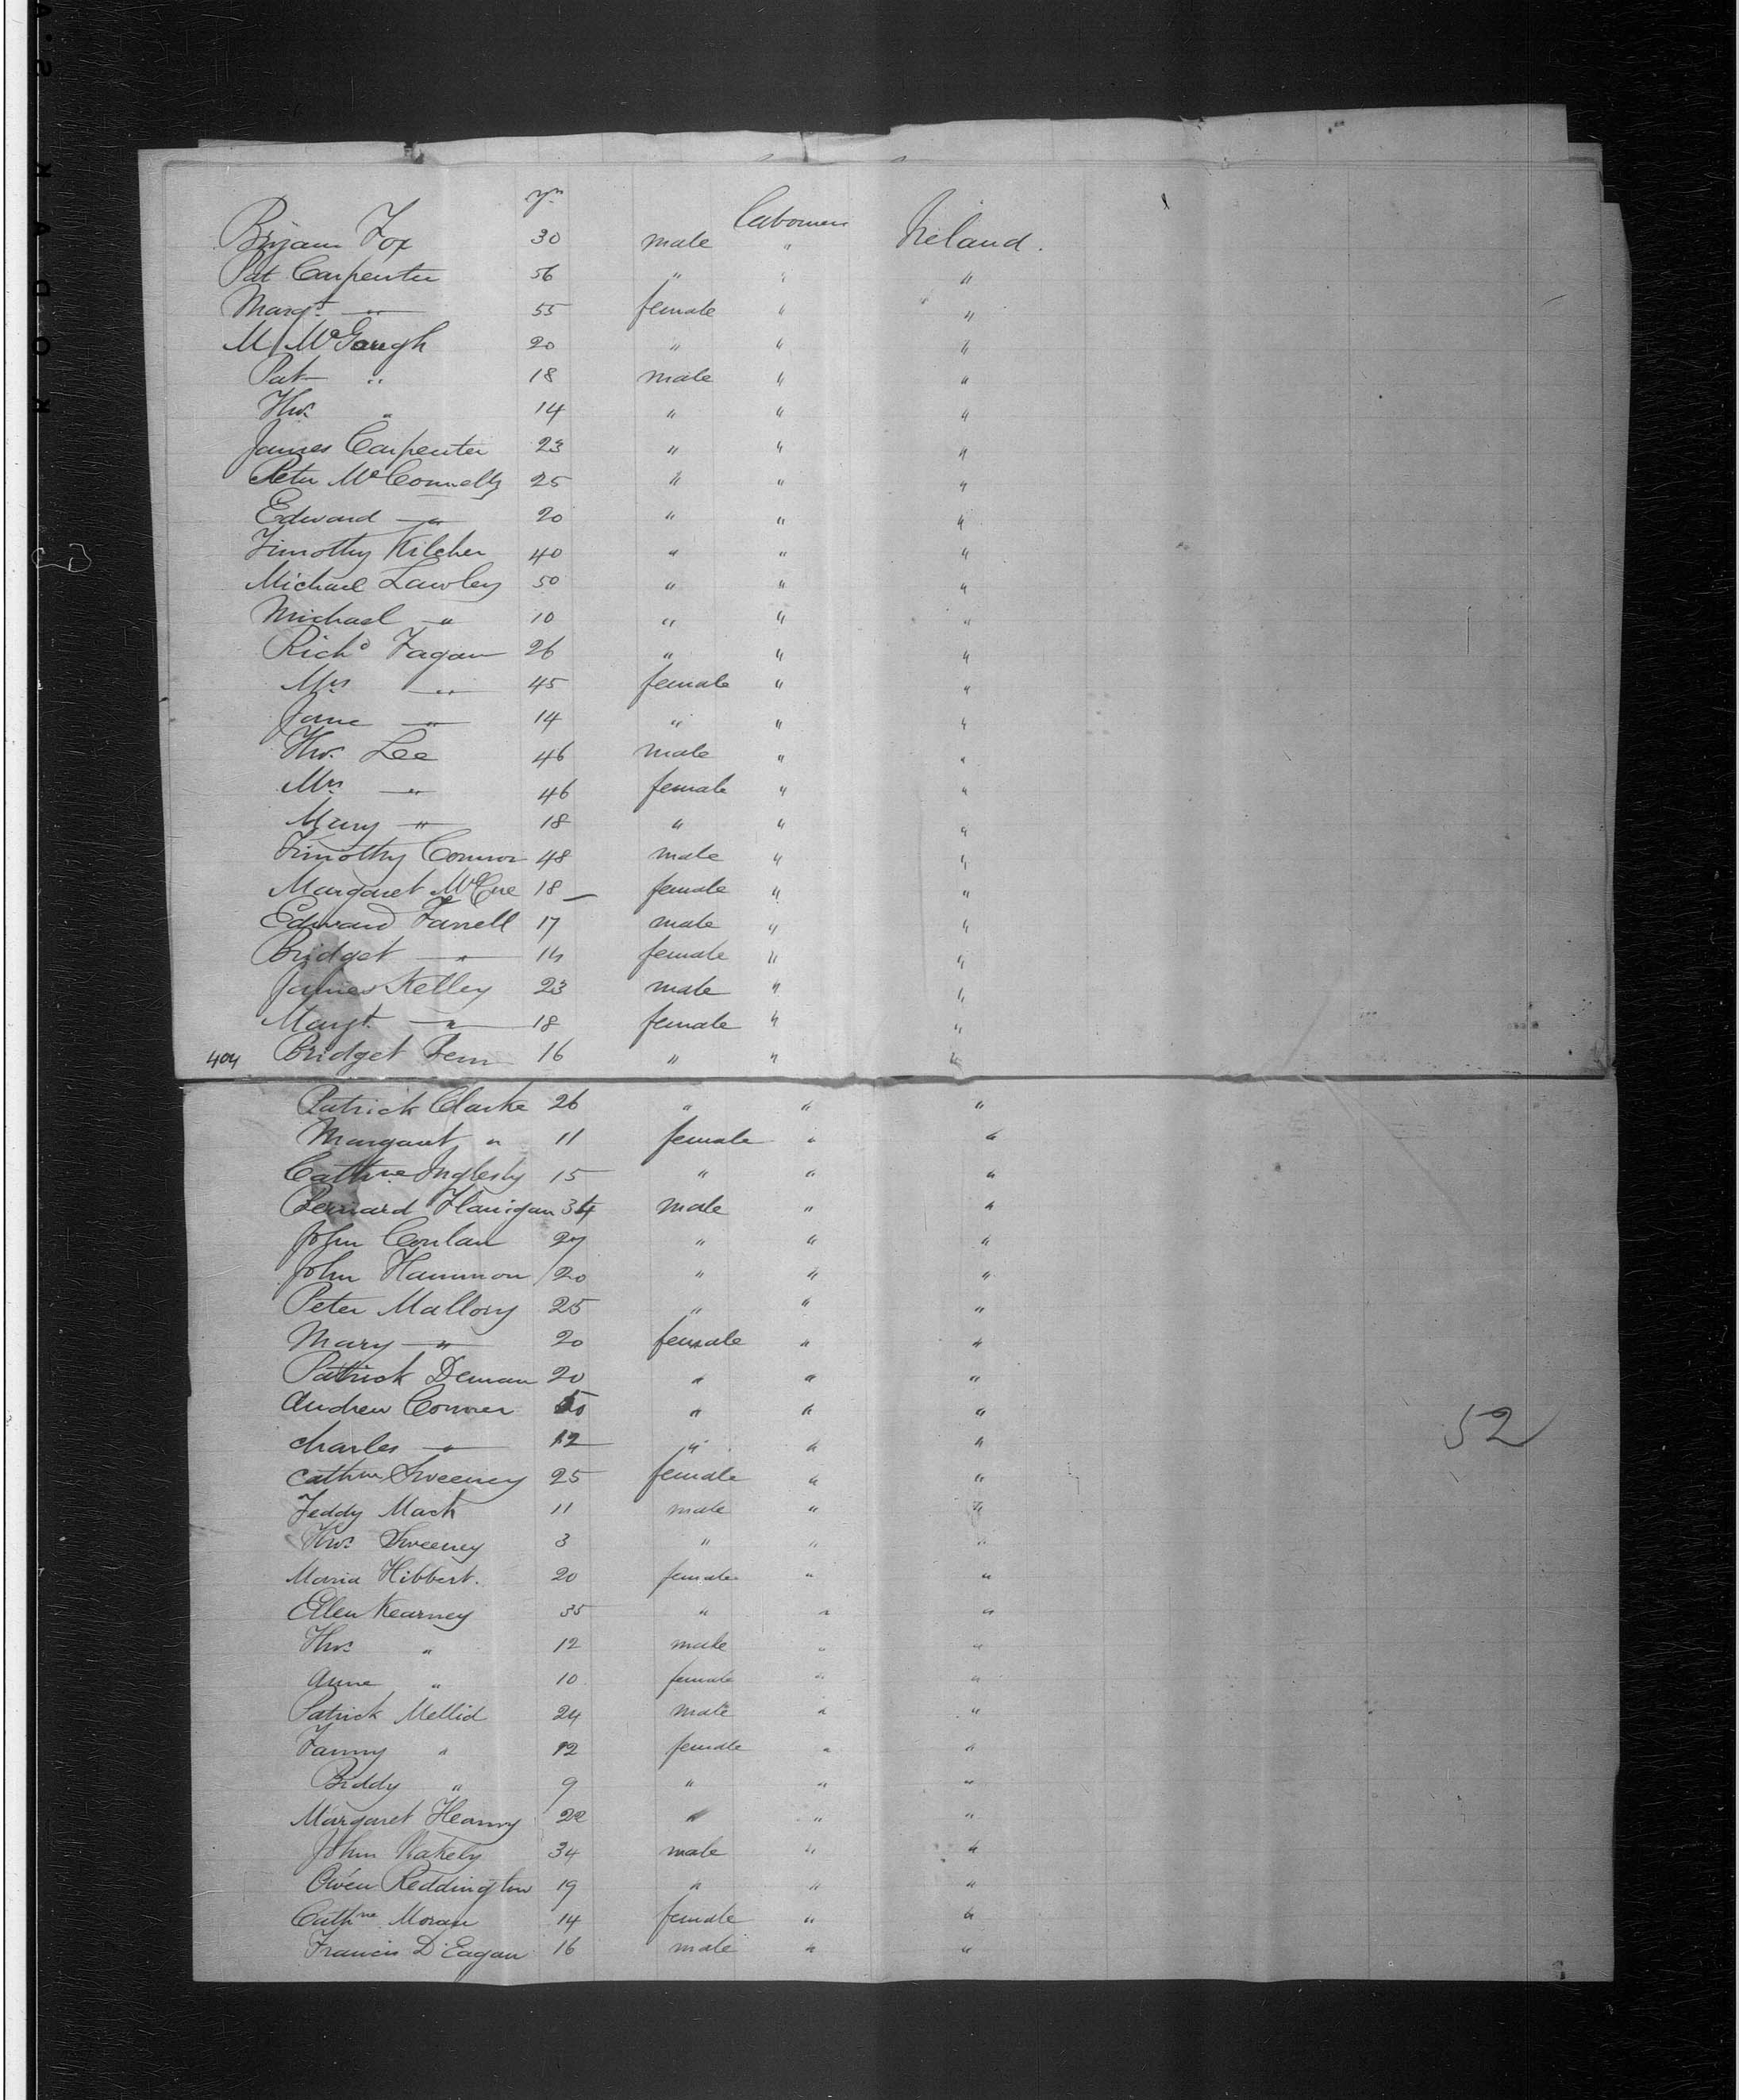 yrs
labourers
Bryan Fox 30 male " Ireland.
Pat Carpenter 56 " " "
Margt — " — 55 female " "
M McGough 20 " " "
Pat — " 18 male " "
Thos " 14 " " "
James Carpenter 23 " " "
Peter McConnelly 25 " " "
Edward — " 20 " " "
Timothy Kilcher 40 " " "
Michael Lawley 50 " " "
Michael — " 10 " " "
Richd Fagan 26 " " "
Mrs — " — 45 female " "
Jane — " — 14 " " "
Thos. Lee 46 male " "
Mrs — " 46 female " "
Mary — " — 18 " " "
Timothy Connor 48 male " "
Margaret McCue 18 — female " "
Edward Farrell 17 male " "
Bridget — " — 14 female " "
James Kelley 23 male " "
Margt. — " — 18 female " "
404 Bridget Fenn 16 " " "
Patrick Clarke 26 " " "
Margaret " 11 female " "
Cathne Inglesby 15 " " "
Bernard Flanigan 34 male " "
John Conlan 27 " " "
John Hammon 20 " " "
Peter Mallony 25 " " "
Mary — " — 20 female " "
Patrick Deman 20 " " "
Andrew Conner " " "
52
Charles — " — 12 " " "
Cathne Sweeney 25 female " "
Teddy Mack 11 male " "
Thos Sweeney 3 " " "
Maria Hibbert. 20 female " "
Ellen Kearney 35 " " "
Thos " 12 male " "
Anne " 10 female " "
Patrick Mellid 24 male " "
Fanny " 12 female " "
Biddy " 9 " " "
Margaret Heanny 22 " " "
John Wakely 34 male " "
Owen Reddington 19 " " "
Cathne Moran 14 female " "
Francis D'Eagan 16 male " "